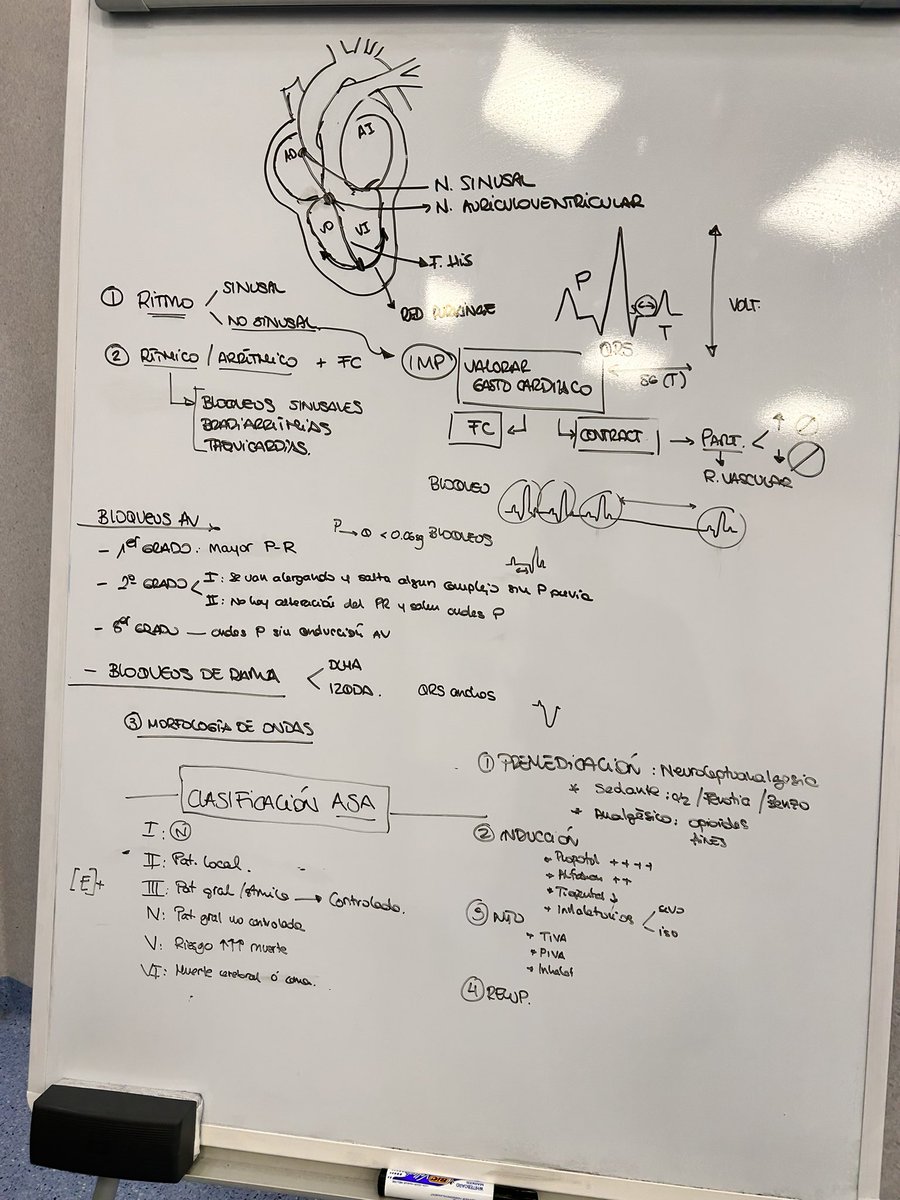 AI
AD
VD
VI
N. SINUSAL
N. AURICULOVENTRICULAR
F. HIS
RED PURKINGE
① RITMO
SINUSAL
NO SINUSAL
② RÍTMICO / ARRÍTMICO + FC
BLOQUEOS SINUSALES
BRADIARRITMIAS
TAQUICARDIAS.
P
QRS
S
T
VOLT.
SG (T)
IMP
VALORAR
GASTO CARDIACO
FC
CONTRACT
PART.
R. VASCULAR
BLOQUEO
BLOQUEOS AV
P → < 0.06sg BLOQUEOS
- 1er GRADO: Mayor P-R
- 2º GRADO
I: Se van alergando y salta algun complejo sin P previa
II: No hay alteración del PR y salen ondas P
GRADO — ondas P sin conducción AV
- BLOQUEOS DE RAMA
DCHA
IZQDA.
QRS anchos
③ MORFOLOGÍA DE ONDAS
CLASIFICACIÓN ASA
I: N
II: Pat. local.
[E]+
III: Pat gral → Controlada.
IV: Pat gral no controlada
V: Riesgo ↑↑↑ muerte
VI: Muerte cerebral ó coma.
① PREMEDICACIÓN: Neuroleptoanalgesia
* Sedante: α2 / Fenotia / Benzo
* Analgésico: opioides
AINES
② INDUCCIÓN
* Propofol ++++
* Alfaxan ++
* Tiopental ↓
* Inhalatorios
SEVO
ISO
③ MTO
* TIVA
* PIVA
* Inhalat
④ RECUP.